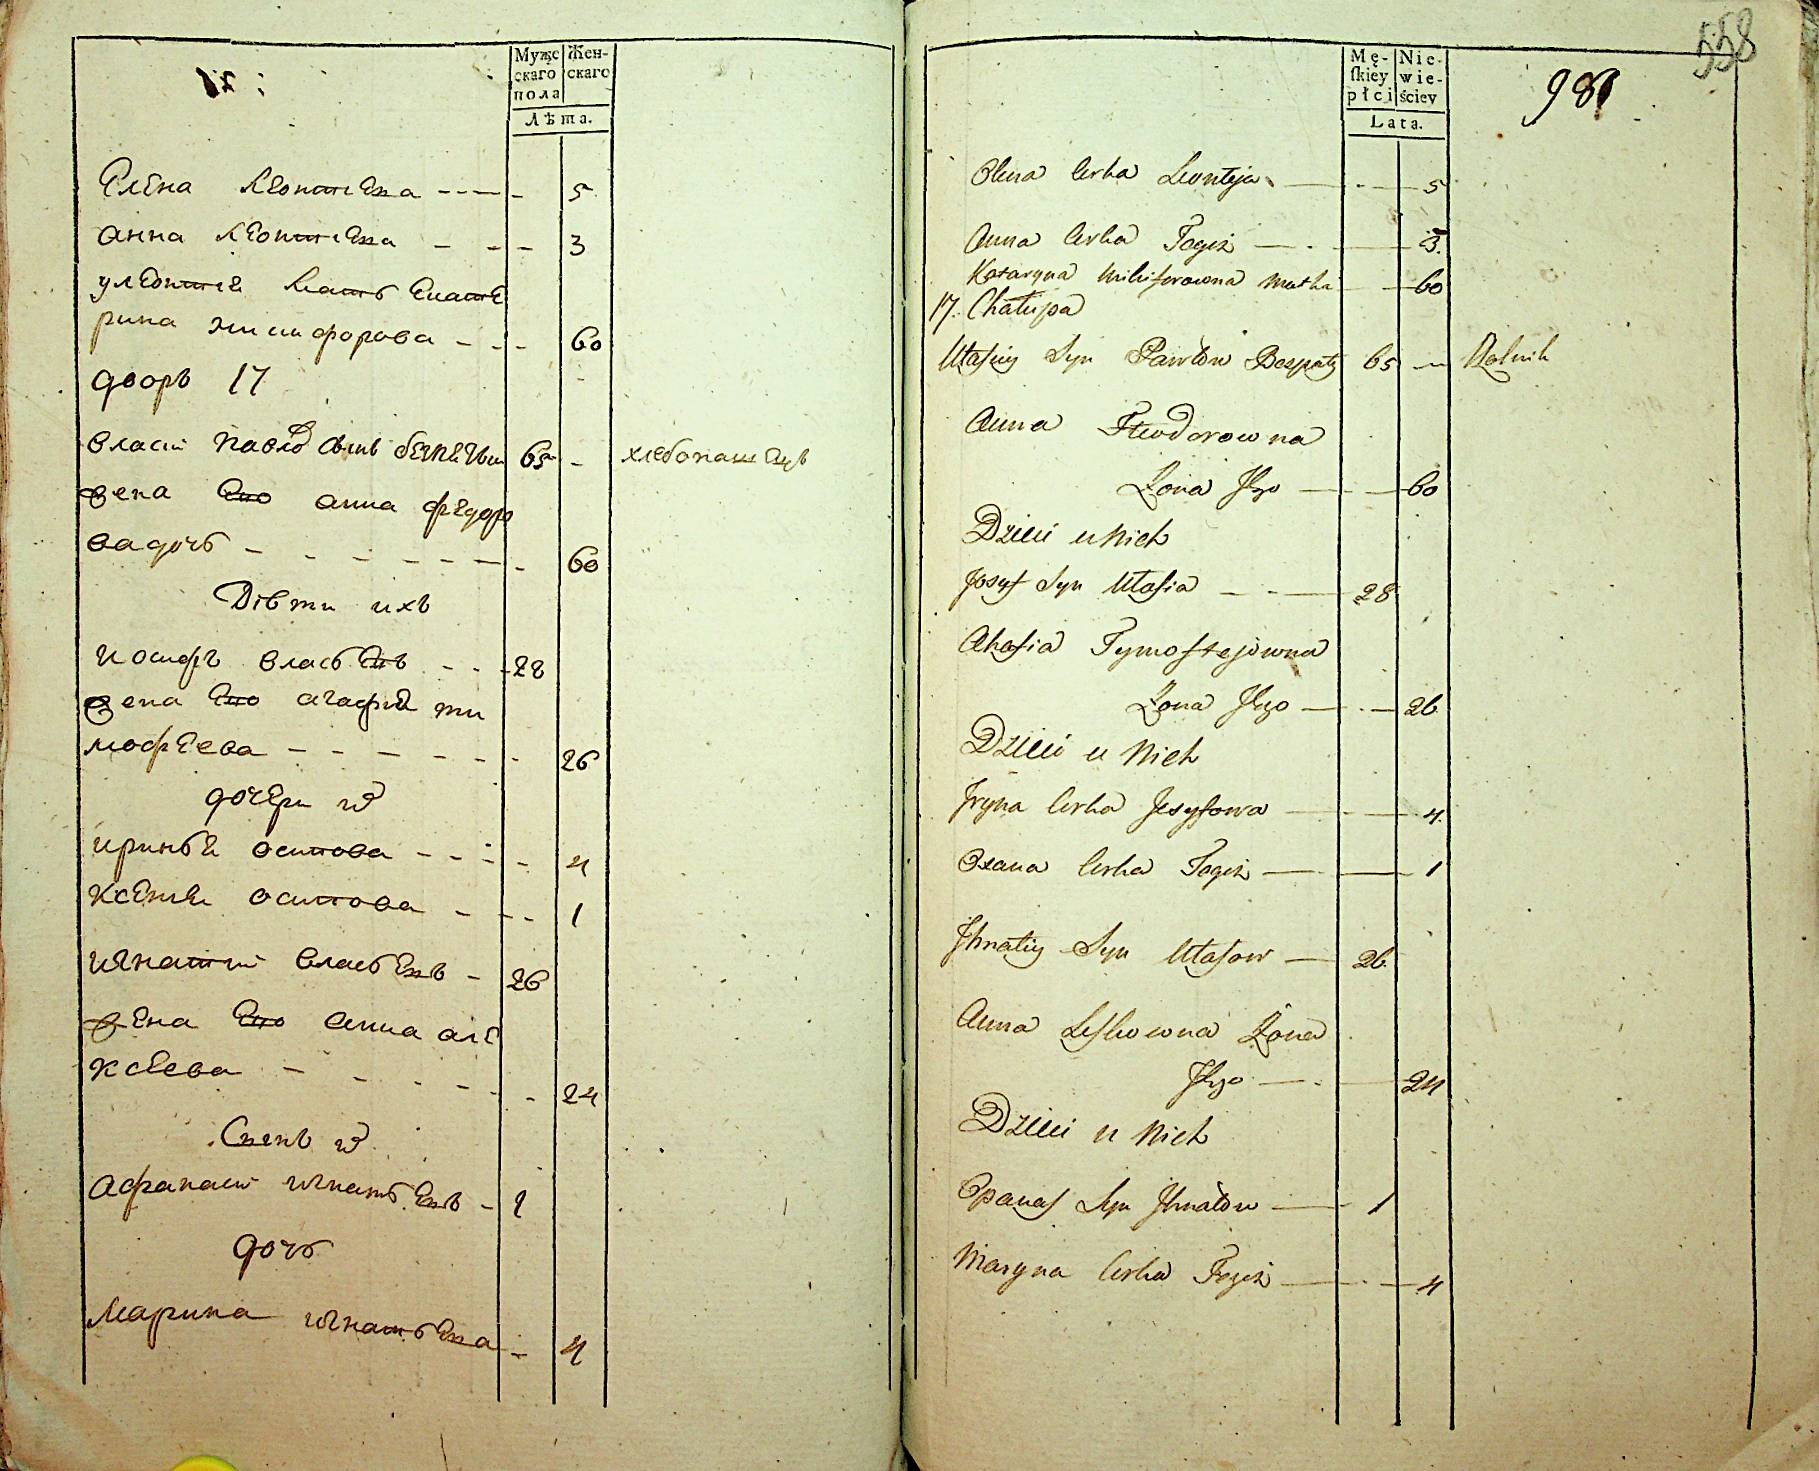 Мужескаго пола
Женскаго
Лѣта.
Елена Леонтьева 5
Анна Леонтьева 3
у Леонтия мать Екате
рина Никифорова 60
дворъ 17
Власий Павловъ сынъ 65 хлебопашецъ
жена ево Анна Федоро
ва дочь 60
Дѣти ихъ
Иосифъ Власьевъ 28
жена ево Агафия Ти
мофеева 26
дочери
Иринья Осипова 4
Ксения Осипова 1
Игнатий Власьевъ 26
жена ево Анна Але
ксеева 24
Сынъ
Афанасий Игнатьевъ 1
дочь
Марина Игнатьева 4
558
Męskiey płci
Niewieściey
Lata.
981
Olena Corka Leonteja 5
Anna Corka Togoż 3
Kataryna Nikiforowna Matka 60
17. Chałupa
Ułasiy Syn Pawłow 65 Rolnik
Anna Fteodorowna
Żona Jego 60
Dzieci u Nich
Josyf Syn Ułasia 28
Ahafia Tymofiejowna
Żona Jego 26
Dzieci u Nich
Jryna Corka Josyfowa 4
Oxana Corka Togoż 1
Jhnatiy Syn Ułasow 26
Anna Leskowna Żona
Jego 24
Dzieci u Nich
Opanas Syn Jhnatow 1
Maryna Corka Tegoż 4